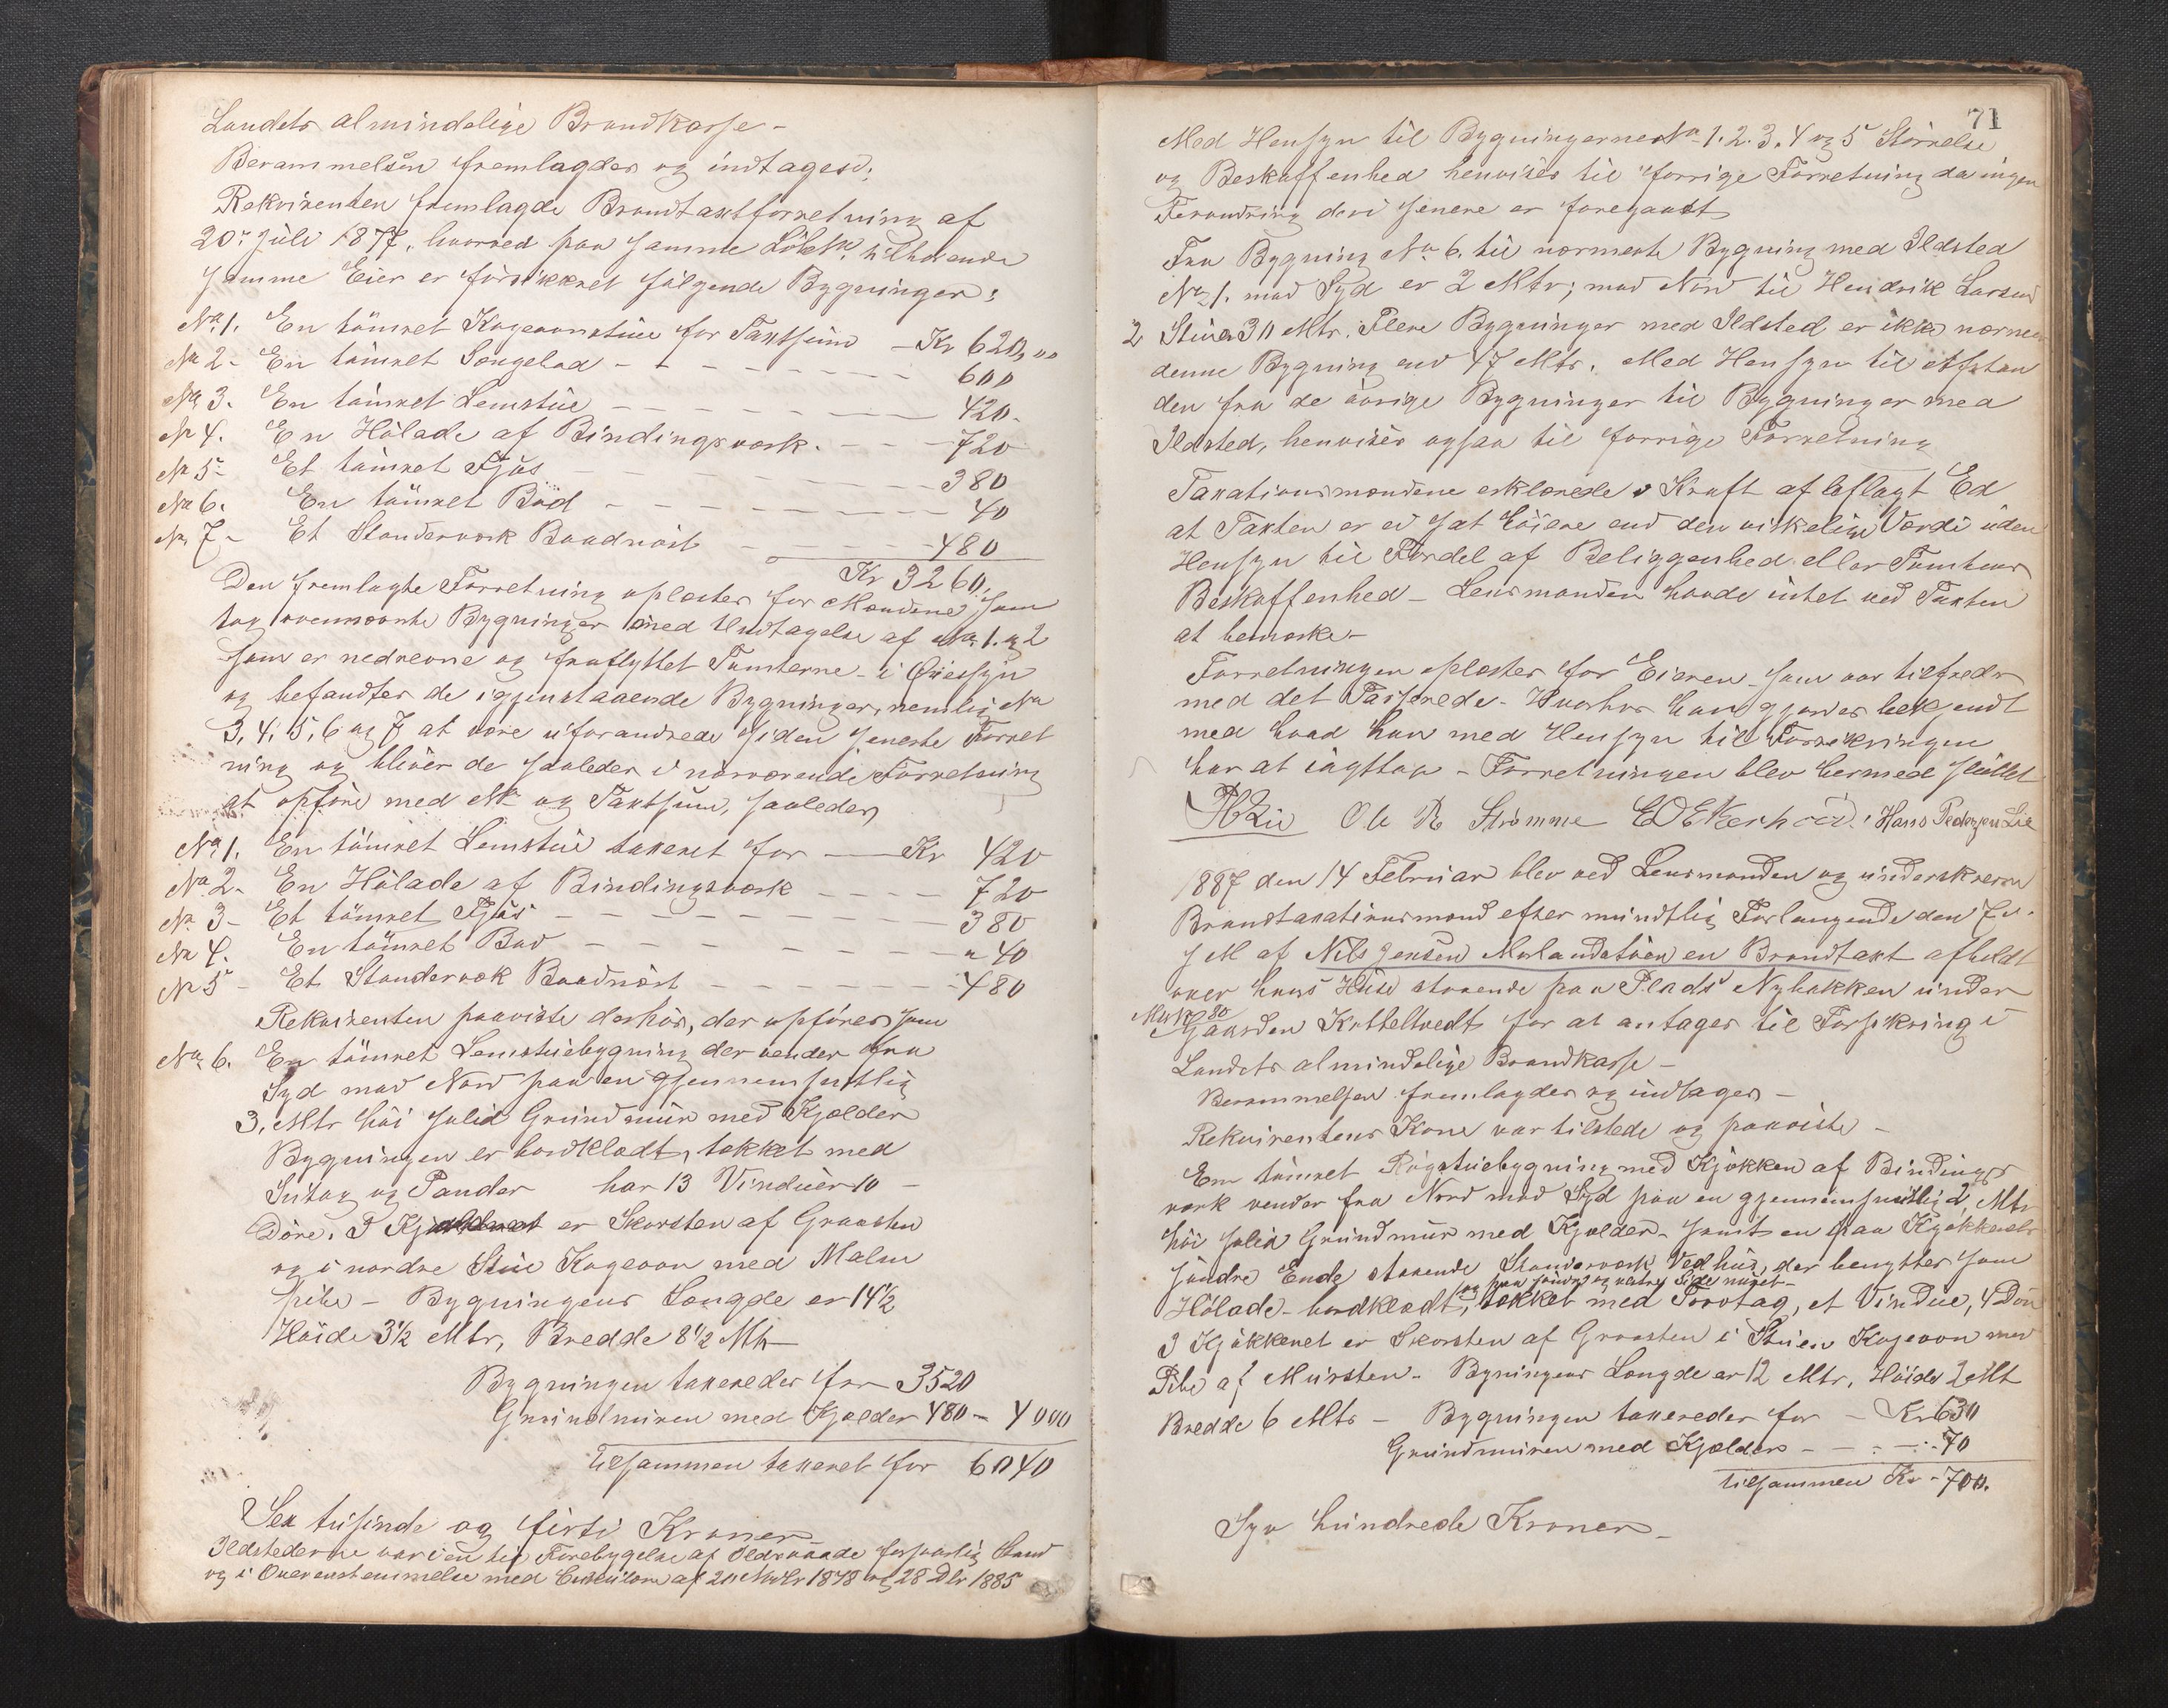 Landets almindelige Brandkasse -
Berammelsen fremlagdes og indtages:
Rekvirenten fremlagde Brandtaxtforretning af
20de Juli 1877, hvorved paa samme Löbe No tilhörende
samme Eier er forsikkret fölgende Bygninger:
No 1. En tömret Kogeovnstue for Taxtsum - Kr 620,00
No 2 - En tömret Sengebod - - - - - - - 600
No 3. En tömret Lemstue - - - - - 420 -
No 4. En Hölade af Bindingsverk. - - - 720
No 5 - Et tömret Fjös - - - - - - 380
No 6. En tömret Bod - - - - - - - 40
No 7 - Et Standerverk Baadnöst - - - - 480
Kr 3260.
Den fremlagte Forretning oplæstes for Mændene som
tog ovennævnte Bygninger med Undtagelse af No 1. og 2
som er nedrevne og fraflyttet Tomterne - i Öiesyn
og befandtes de igjenstaaende Bygninger, nemlig No
3, 4, 5, 6 og 7 at være uforandrede siden seneste Forret
ning og bliver de saaledes i nærværende Forretning
at opföre med No og Taxtsum, saaledes
No 1. En tömret Lemstue taxeret for - Kr 420
No 2 - En Hölade af Bindingsverk - - - - 720
No 3 - Et tömret Fjös - - - - - - - 380
No 4. En tömret Bod - - - - - - - " 40
No 5 - Et Standerverk Baadnöst - - - - - 480
Rekvirenten paaviste derhos, der opföres som
No 6. En tömret Lemstuebygning der vender fra
Syd mod Nord paa en gjennemsnitlig
3, Mtr höi solid Grundmur med Kjælder
Bygningen er bordklædt, tækket med
Sutag og Pander har 13 Vinduer 10 -
Döre. I er Skorsten af Graasten
og i nordre Stue Kogeovn med Malm
pibe - Bygningens Længde er 14½
Höide 3½ Mtr, Bredde 8½ Mtr
Bygningen taxeredes for 3520
Grundmuren med Kjælder 480 - 4000
tilsammen taxeret for 6040
Sex tusinde og firti Kroner
Ildstederne var i en til Forebygelse af Ildsvaade forsvarlig Stand
og i Overenstemmelse med Cirkulære af 20 Novbr 1878 og 28 Dbr 1885
71
Med Hensyn til Bygningernes No 1. 2. 3. 4 og 5 Störrelse
og Beskaffenhed henvises til forrige Forretning da ingen
Forandring deri senere er foregaaet
Fra Bygning No 6. til nærmeste Bygning med Ildsted
No 1. mod Syd er 2 Mtr; mod Nord til Hendrik Larsens
2 Stuer 30 Mtr. Flere Bygninger med Ildsted er ikke nærmere
denne Bygning end 47 Mtr. Med Hensyn til Afstan
den fra de övrige Bygninger til Bygninger med
Ildsted, henvises ogsaa til forrige Forretning
Taxationsmændene erklærede i Kraft af aflagt Ed
at Taxten er ei sat höiere end den virkelige Værdi uden
Hensyn til Fordel af Beliggenhed eller Tomtens
Beskaffenhed - Lensmanden havde intet ved Taxten
at bemærke -
Forretningen oplæstes for Eieren - som var tilfreds
med det Passerede - Hvorhos han gjordes bekjendt
med hvad han med Hensyn til Forsikringen
har at iagttage - Forretningen blev hermed sluttet
Lie Ole R Strömme Hans Pedersen Lie
1887 den 14 Februar blev ved Lensmanden og underskrevne
Brandtaxationsmænd efter mundtlig Forlangende den 7de
s M af Nils Jensen Mulandstöen en Brandtaxt afholdt
over hans Huse staaende paa Plads Nybakken under
Mat No 80 Gaarden Kvitteltvedt for at antages til Forsikring i
Landets almindelige Brandkasse -
Berammelsen fremlagdes og indtages -
Rekvirentens Kone var tilstede og paaviste -
En tömret Rögstuebygning med Kjökken af Bindings
verk vender fra Nord mod Syd paa en gjennemsnitlig 2, Mtr
höi solid Grundmur med Kjælder - samt en paa Kjökkenets
söndre Ende staaende Standerverk Vedhus, der benyttes som
og paa söndre og vestre Side muret -
Hölade - bordklædt, tækket med Torvtag, et Vindue, 4 Döre
I Kjökkenet er Skorsten af Graasten i Stuen Kogeovn med
Pibe af Mursten - Bygningens Længde er 12 Mtr, Höide 2 Mtr
Bredde 6 Mtr - Bygningen taxeredes for - Kr 630
Grundmuren med Kjælder - - - - - 70
tilsammen Kr - 700.
Syv hundrede Kroner -